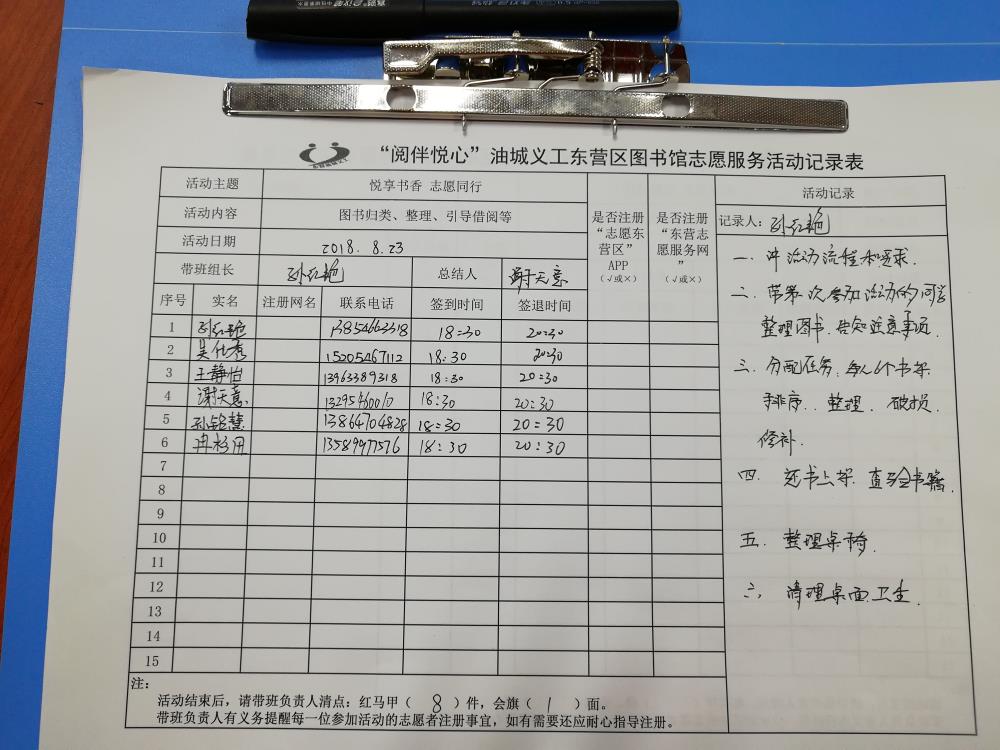 “阅伴悦心”油城义工东营区图书馆志愿服务活动记录表
活动主题 悦享书香 志愿同行
活动内容 图书归类、整理、引导借阅等
活动日期 2018.8.23
带班组长 孙红艳 总结人 谢天意
序号 实名 注册网名 联系电话 签到时间 签退时间
是否注册“志愿东营区”APP（√或×）
是否注册“东营志愿服务网”（√或×）
1 孙红艳 13854663318 18:30 20:30
2 吴化秀 15205467112 18:30 20:30
3 王静怡 13963389318 18:30 20:30
4 谢天意 18:30 20:30
5 孙铭慧 13864704828 18:30 20:30
6 冉衫田 13589977576 18:30 20:30
7
8
9
10
11
12
13
14
15
注：
活动结束后，请带班负责人清点：红马甲（ 8 ）件，会旗（ 1 ）面。
带班负责人有义务提醒每一位参加活动的志愿者注册事宜，如有需要还应耐心指导注册。
活动记录
记录人：孙红艳
一. 讲活动流程和要求.
二. 带第一次参加活动的同学
整理图书.告知注意事项.
三. 分配任务.每人6个书架
排序. 整理. 破损.
修补.
四. 还书上架. 查验书籍.
五. 整理桌椅.
六, 清理桌面卫生.